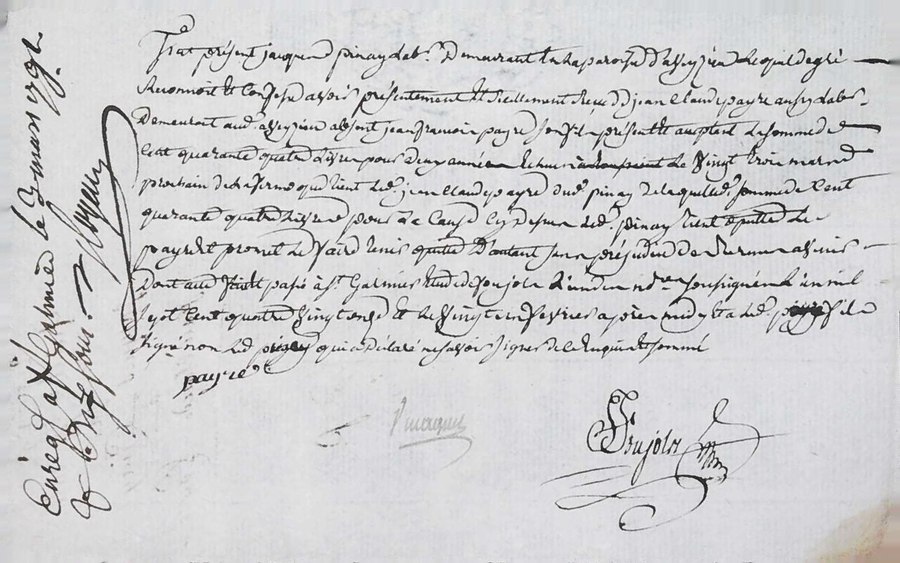 Fut présent jacques pinay lab.r Demeurant en la paroisse d'aveyzieu Lequel de gré
Reconnoit et Confesse avoir présentement et Réellement Reçu De jean Claude payre aussy lab.r
Demeurant aud. aveyzieu absent jean francois payre son fils présent et acceptant La somme de
Cent quarante quatre Livres pour Deux années le vingt trois mars
prochain de la ferme que tient led. jean Claude payre dud. pinay de laquelle d. somme de Cent
quarante quatre Livres pour La Cause Cy dessus led. pinay tient quitte Led.
payre et promet Le faire tenir quitte D'autant sans préjudice de
Dont acte fait et passé à St Galmier Etude de Soujols L'un des no.res soussignés L'an mil
sept Cent quatre vingt onze et Le vingt un fevrier après midy et a led. payre fils
Signé non led. pinay qui a déclaré ne savoir signer de ce Enquis et sommé
payre
Soujols
Enreg. à St Galmier le 5 mars 1791
R.